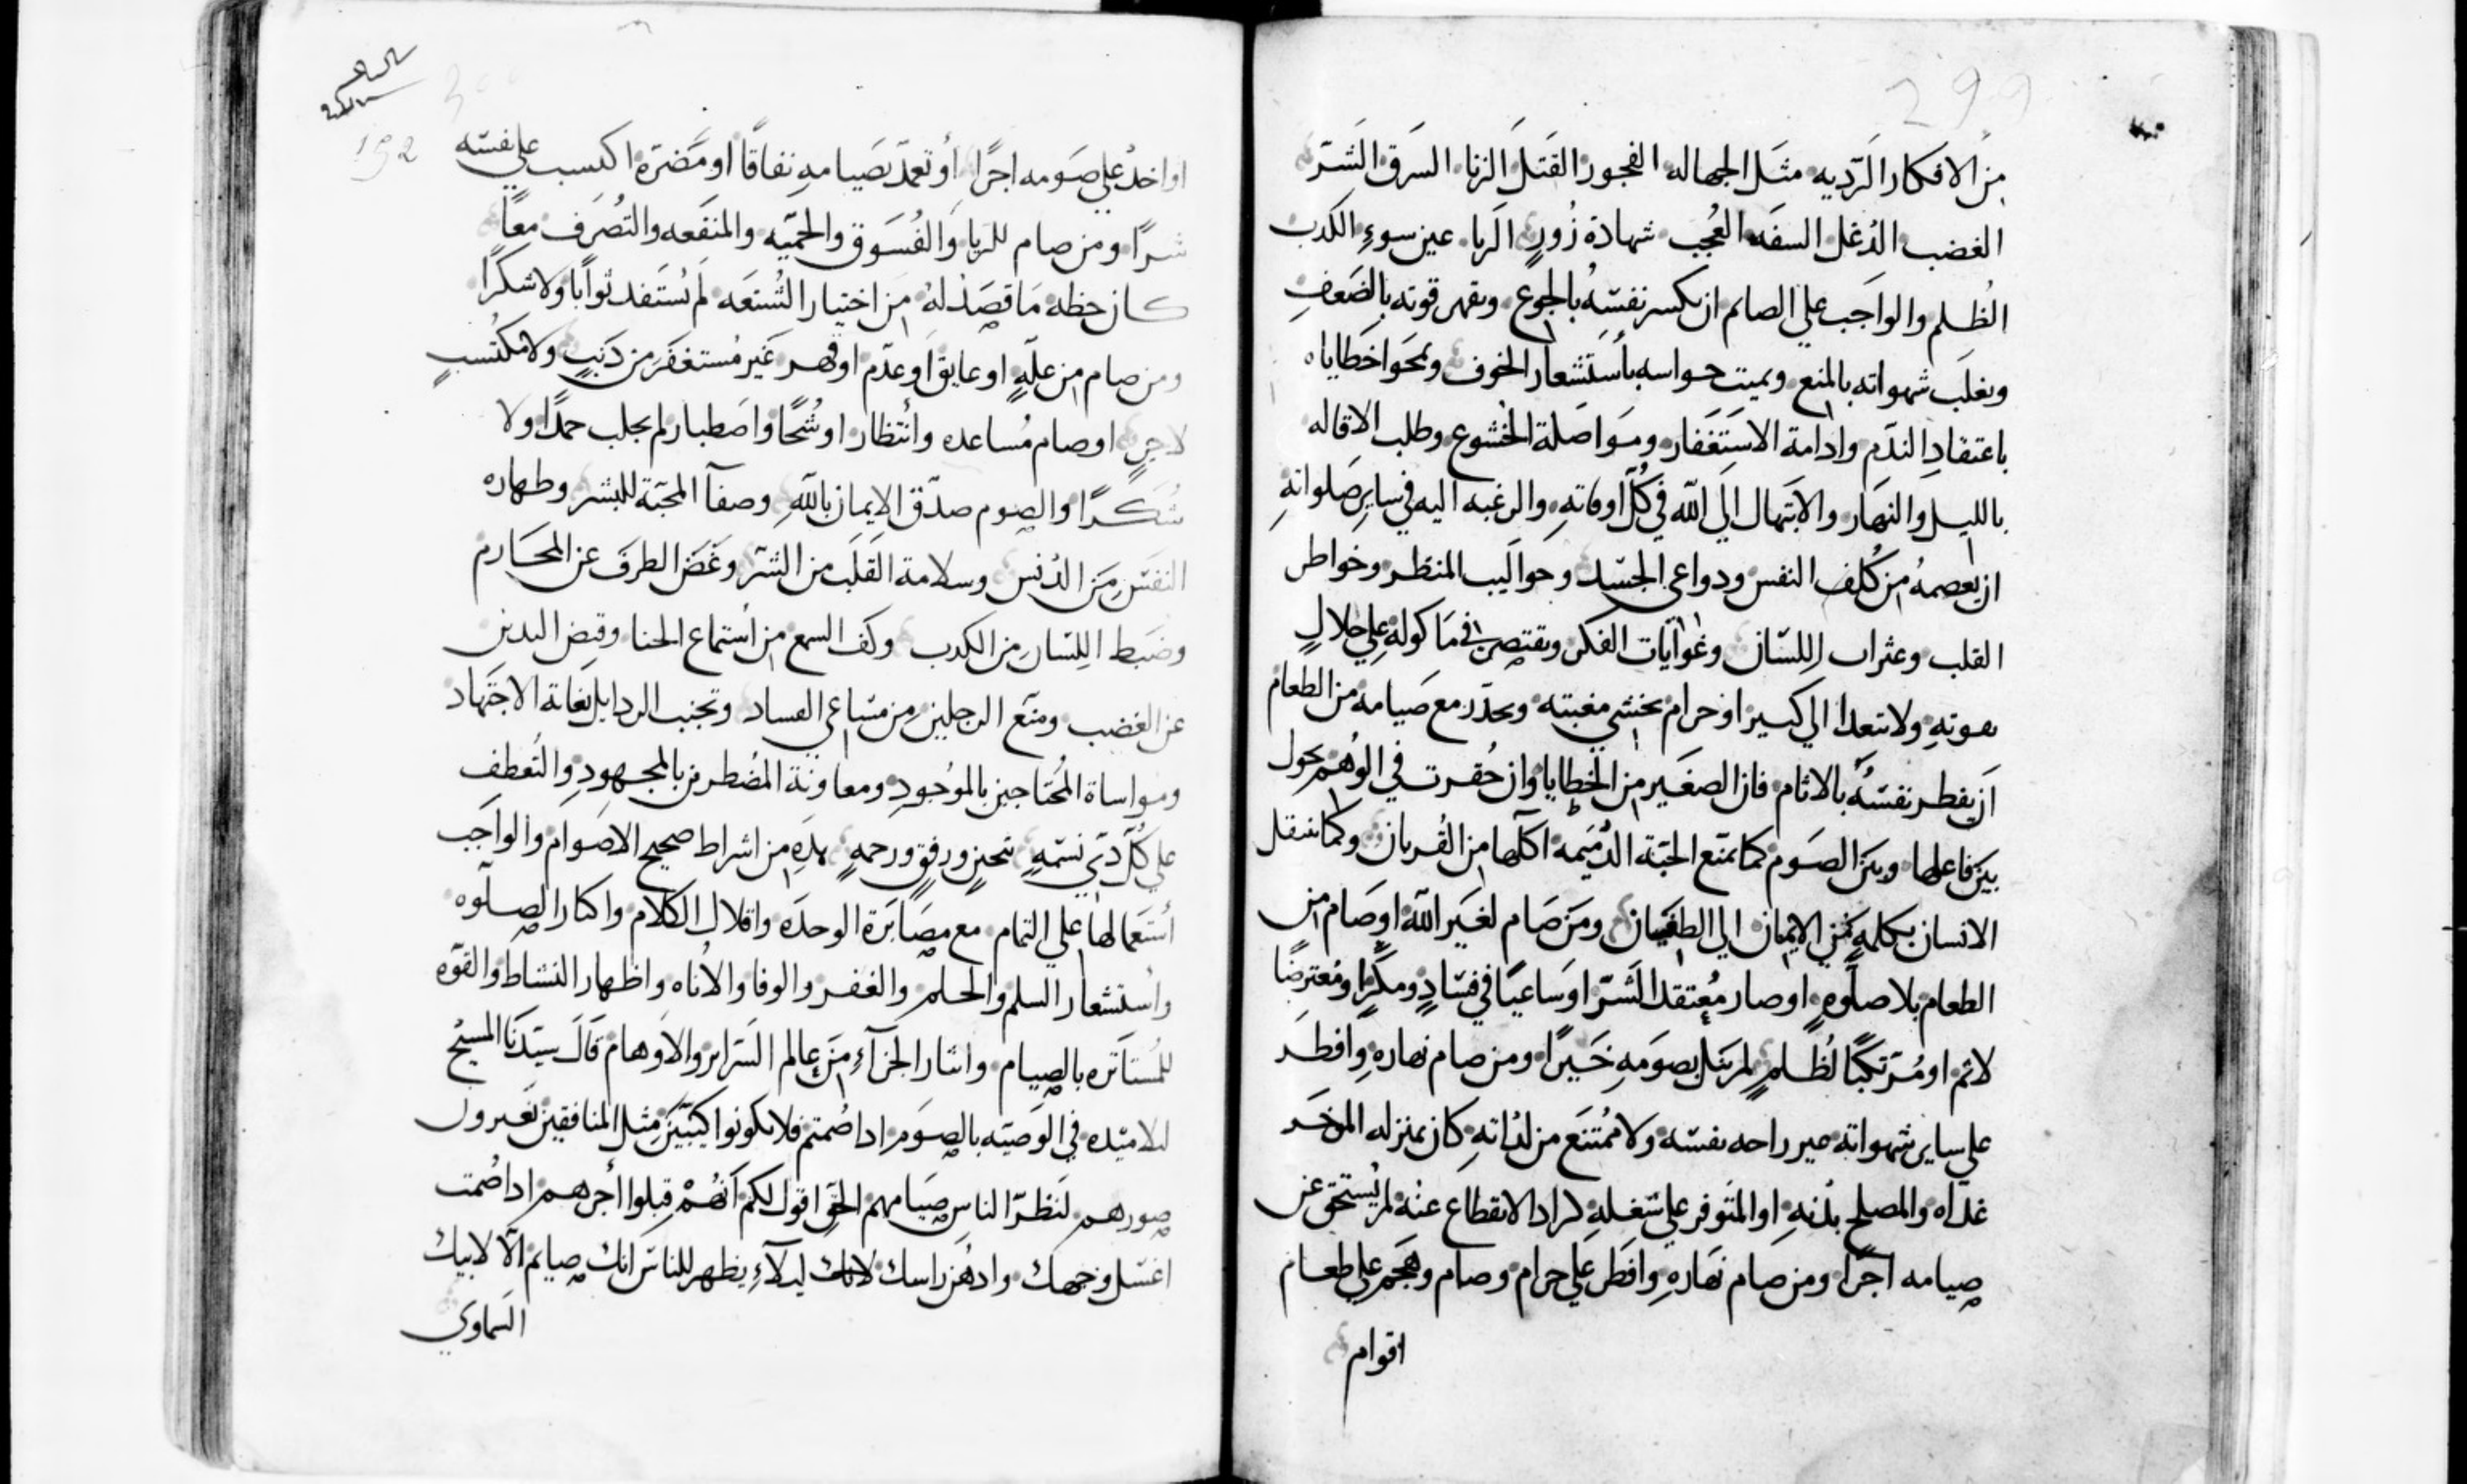 299
من الافكار الرديه مثل الجهاله الفجور القتل الزنا السرق الشر
الغضب الدغل السفه العجب شهادة زور الريا عين سوء الكدب
الظلم والواجب علي الصايم ان يكسر نفسه بالجوع ويقهر قوته بالضعف
ويغلب شهواته بالمنع ويميت حواسه بأستشعار الخوف ويمحوا خطاياه
باعتقاد الندم وادامة الاستغفار ومواصلة الخشوع وطلب الاقاله
بالليل والنهار والابتهال الي الله في كل اوقاته والرغبه اليه في ساير صلواته
ان يعصمه من كلف النفس ودواعي الجسد وحواليب المنظر وخواطر
القلب وعثرات اللسان وغوايات الفكر ويقتصر في ماكوله علي حلال
قوته ولا يتعدا الي كسير او حرام يخشي مغبته ويحدر مع صيامه من الطعام
ان يفطر نفسه بالاثام فان الصغير من الخطايا وان حقرت في الوهم يحول
بين فاعلها وبين الصوم كما تمنع الحبة الدميمه اكلها من القربان وكما ينقل
الانسان بكلمه من الايمان الي الطغيان ومن صام لغير الله او صام من
الطعام بلا صلوه او صار معتقد الشر او ساعيا في فساد ومكرا ومعترضا
لاثم او مرتكبا لظلم لم ينل بصومه خيرا ومن صام نهاره وافطر
علي ساير شهواته غير راحه نفسه ولا ممتنع من لداته كان بمنزله المدخر
غداه والمصلح بدنه او المتوفر علي شغله لم يستحق عن
صيامه اجرا ومن صام نهاره وافطر علي حرام وصام وهجم علي طعام
اقوام
300
192
او اخد علي صومه اجرا أو تعمد بصيامه نفاقا او مضرة اكتسب علي نفسه
شرا ومن صام للريا والفسوق والحميه والمنفعه والتصرف معا
كان حظه ما قصد له من اختيار الشنعه لم يستفد ثوابا ولا شكرا
ومن صام من عله او عايق او عدم او قهر غير مستغفر من دنب ولا مكتسب
لاجر او صام مساعده وأنتظار او شحا واصطبار لم يجلب حمدا ولا
شكرا والصوم صدق الايمان بالله وصفآ المحبة للبشر وطهاره
النفس من الدنس وسلامة القلب من الشر وغض الطرف عن المحارم
وضبط اللسان من الكدب وكف السمع من أستماع الخنا وقبض اليدين
عن الغضب ومنع الرجلين من مساعي الفساد وتجنب الردايل بغاية الاجتهاد
ومواساة المحتاجين بالموجود ومعاونة المضطرين بالمجهود والتعطف
علي كل دي نسمه بتحنن ورفق ورحمه هده من اشراط صحيح الاصوام والواجب
أستعمالها علي التمام مع مصابرة الوحده واقلال الكلام واكثار الصلوه
وأستشعار السلم والحلم والغفر والوفا والأناه واظهار النشاط والقوه
للمستاتره بالصيام وايثار الجزآء من عالم السراير والاوهام قال سيدنا المسيح
لتلاميده في الوصيه بالصوم ادا صمتم فلا تكونوا كييبين مثل المنافقين يغيرون
صورهم لتنظر الناس صيامهم الحق اقول لكم أنهم قبلوا أجرهم ادا صمت
اغسل وجهك وادهن راسك ليلآء يظهر للناس انك صايم الا لابيك
السماوي